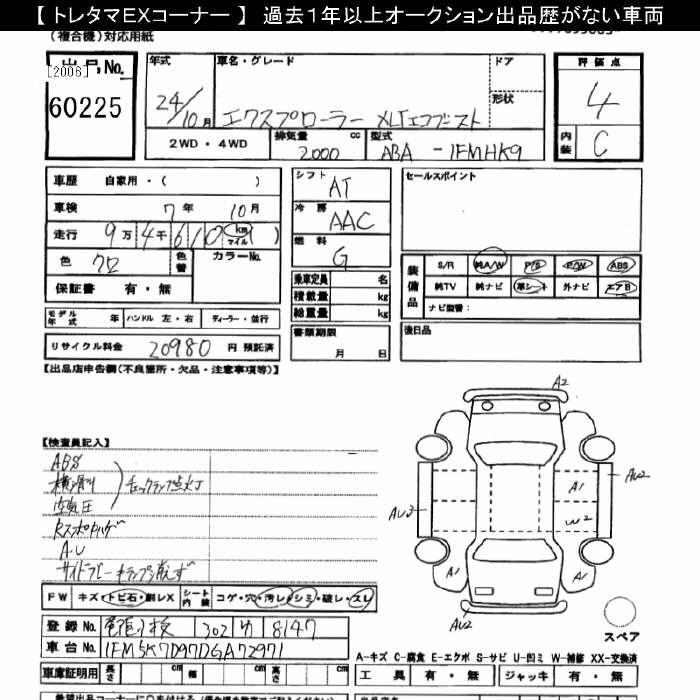 【 トレタマEXコーナー 】 過去1年以上オークション出品歴がない車両
(複合機)対応用紙
[2006] 出品No.
60225
年式 24/10月
車名・グレード エクスプローラー XLTエコブースト
ドア
形状
評価点 4
内装 C
2WD・4WD
排気量 2000 cc
型式 ABA - 1FMHK9
車歴 自家用・( )
車検 7年 10月
走行 9万4千610 (km マイル)
色 クロ 色替 カラーNo.
保証書 有・無
シフト AT
冷房 AAC
燃料 G
乗車定員 名
積載量 kg
総重量 kg
書類期限
月 日
セールスポイント
装備品 S/R 純A/W P/S P/W ABS
純TV 純ナビ 革シート 外ナビ エアB
ナビ型番:
後日品
モデル年式 年 ハンドル 左・右 ディーラー・並行
リサイクル料金 20980 円 預託済
【出品店申告欄(不良箇所・欠品・注意事項等)】
【検査員記入】
ABS
横滑り
空気圧
チェックランプ点灯
A・U
サイドブレーキランプ消えず
A2
AU2
A1
AU3
W2
A1
A1
AU2
スペア
FW キズ・トビ石・創レX シート内装 コゲ・穴・汚レ・シミ・破レ・スレ
登録No. 302 8147
車台No. 1FM5K7D97DGA72971
車庫証明用 長さ cm 幅 cm 高さ cm
A-キズ C-腐食 E-エクボ S-サビ U-凹ミ W-補修 XX-交換済
工具 有・無 ジャッキ 有・無